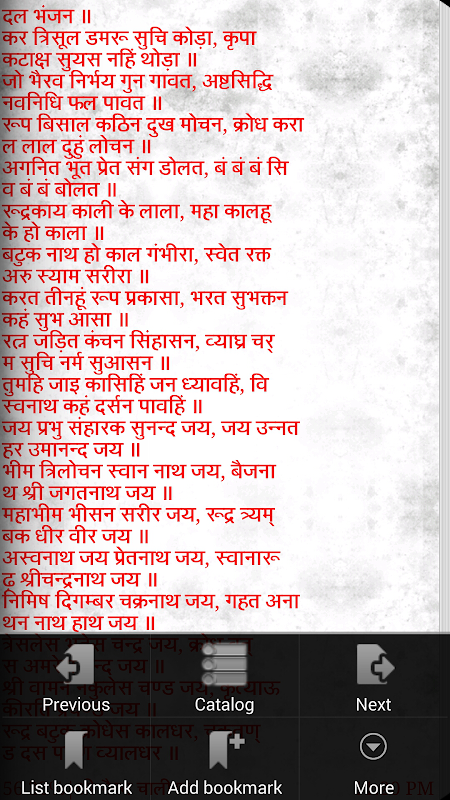 दल भंजन ॥
कर त्रिसूल डमरू सुचि कोड़ा, कृपा
कटाक्ष सुयस नहिं थोड़ा ॥
जो भैरव निर्भय गुन गावत, अष्टसिद्धि
नवनिधि फल पावत ॥
रूप बिसाल कठिन दुख मोचन, क्रोध करा
ल लाल दुहुं लोचन ॥
अगनित भूत प्रेत संग डोलत, बं बं बं सि
व बं बं बोलत ॥
रूद्रकाय काली के लाला, महा कालहू
के हो काला ॥
बटुक नाथ हो काल गंभीरा, स्वेत रक्त
अरु स्याम सरीरा ॥
करत तीनहूं रूप प्रकासा, भरत सुभक्तन
कहं सुभ आसा ॥
रत्न जड़ित कंचन सिंहासन, व्याघ्र चर्
म सुचि नर्म सुआसन ॥
तुमहि जाइ कासिहिं जन ध्यावहिं, वि
स्वनाथ कहं दर्सन पावहिं ॥
जय प्रभु संहारक सुनन्द जय, जय उन्नत
हर उमानन्द जय ॥
भीम त्रिलोचन स्वान नाथ जय, बैजना
थ श्री जगतनाथ जय ॥
महाभीम भीसन सरीर जय, रूद्र त्र्यम्
बक धीर वीर जय ॥
अस्वनाथ जय प्रेतनाथ जय, स्वानारू
ढ़ श्रीचन्द्रनाथ जय ॥
निमिष दिगम्बर चक्रनाथ जय, गहत अना
थन नाथ हाथ जय ॥
चन्द्र जय,
जय ॥
श्री वामन नकुलेस चण्ड जय,
जय ॥
रूद्र बटुक क्रोधेस कालधर,
व्यालधर ॥
Previous Catalog Next
List bookmark Add bookmark More
PM